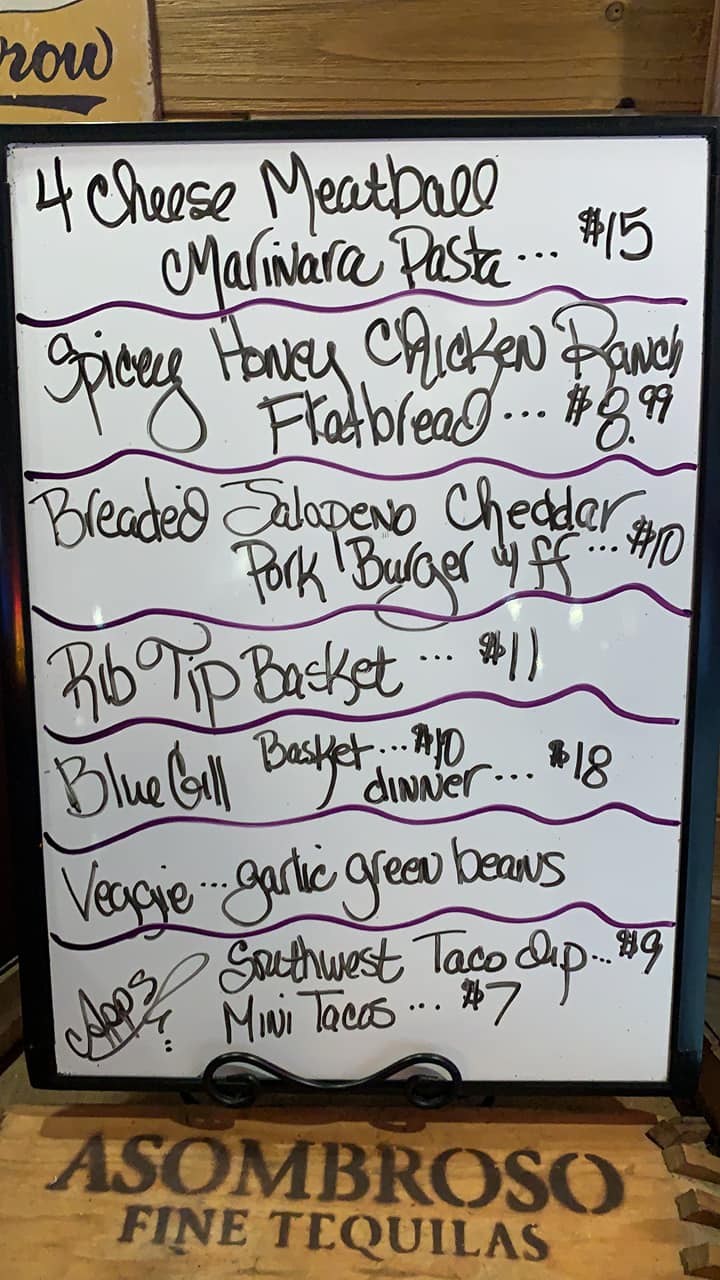 row
4 Cheese Meatball
Marinara Pasta... $15
Spicey Honey Chicken Ranch
Flatbread... $8.99
Breaded Jalapeno Cheddar
Pork Burger w/ ff... $10
Rib Tip Basket... $11
Blue Gill Basket... $10
dinner... $18
Veggie... garlic green beans
Apps: Southwest Taco dip... $9
Mini Tacos... $7
ASOMBROSO
FINE TEQUILAS